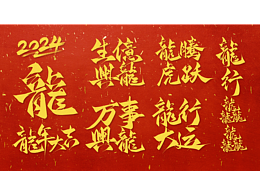 2024
龍
龍年大吉
生億
興龍
万事
興龍
龍腾
虎跃
龍行
大运
龍行
龘
龘